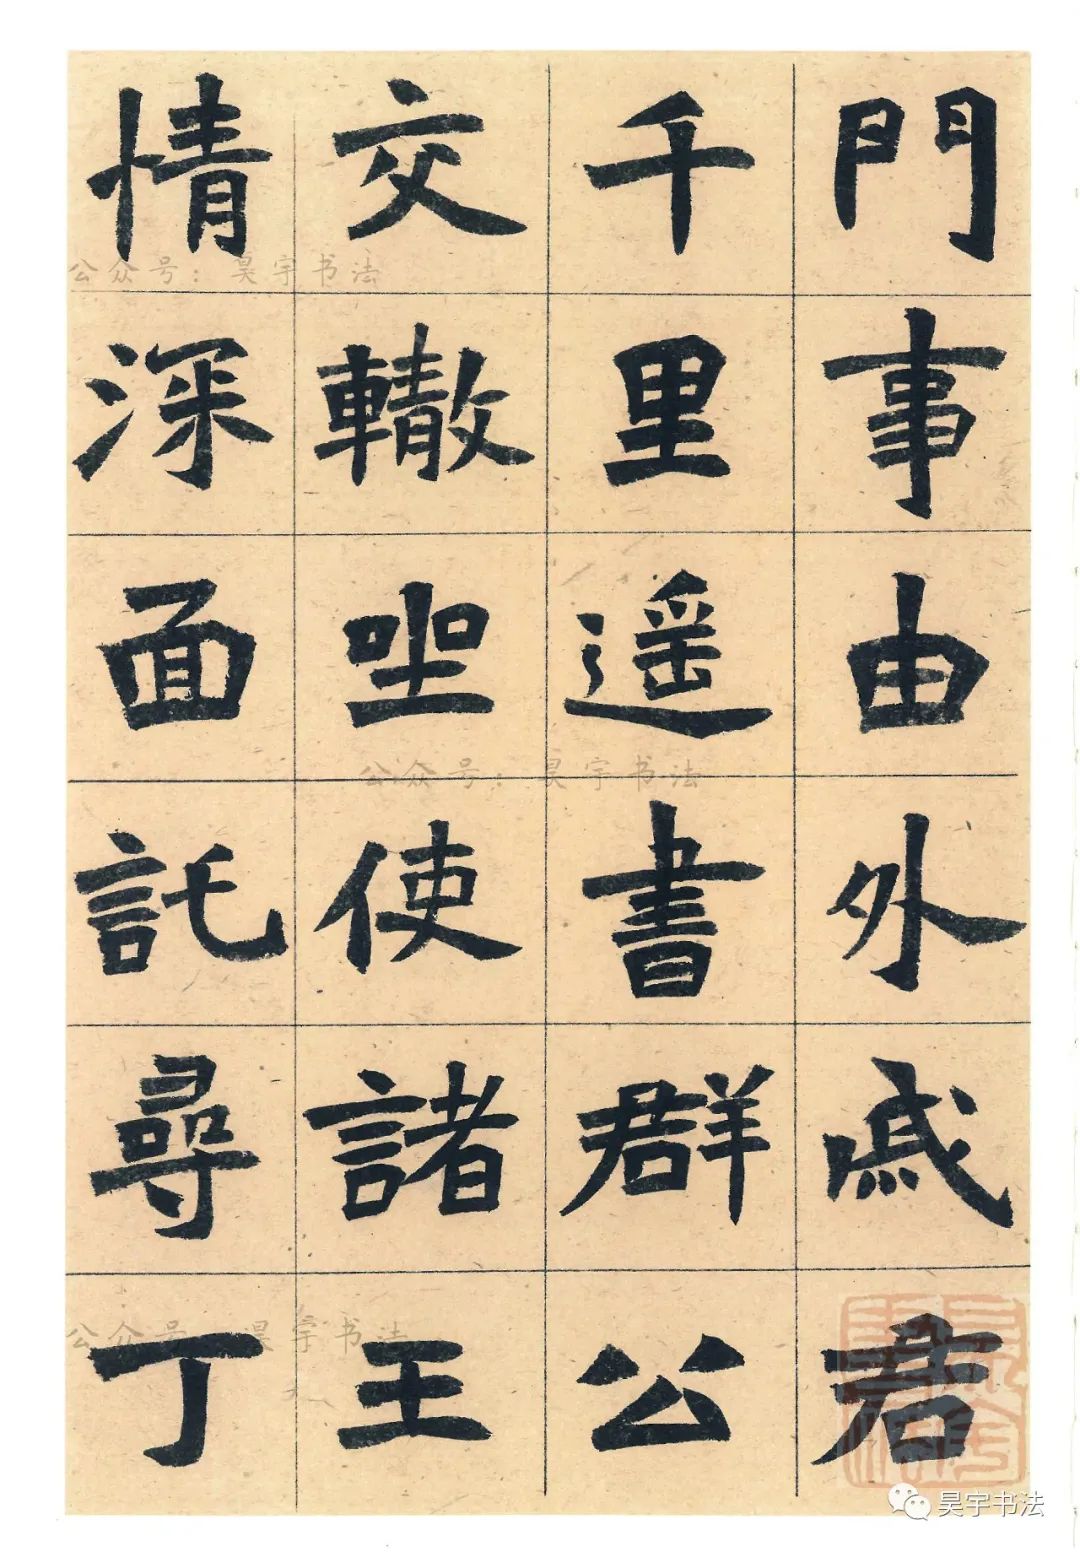 門事由外戚君
千里遥書群公
交轍坐使諸王
情深面託尋丁
公众号：昊宇书法
公众号：昊宇书法
公众号：昊宇书法
昊宇书法